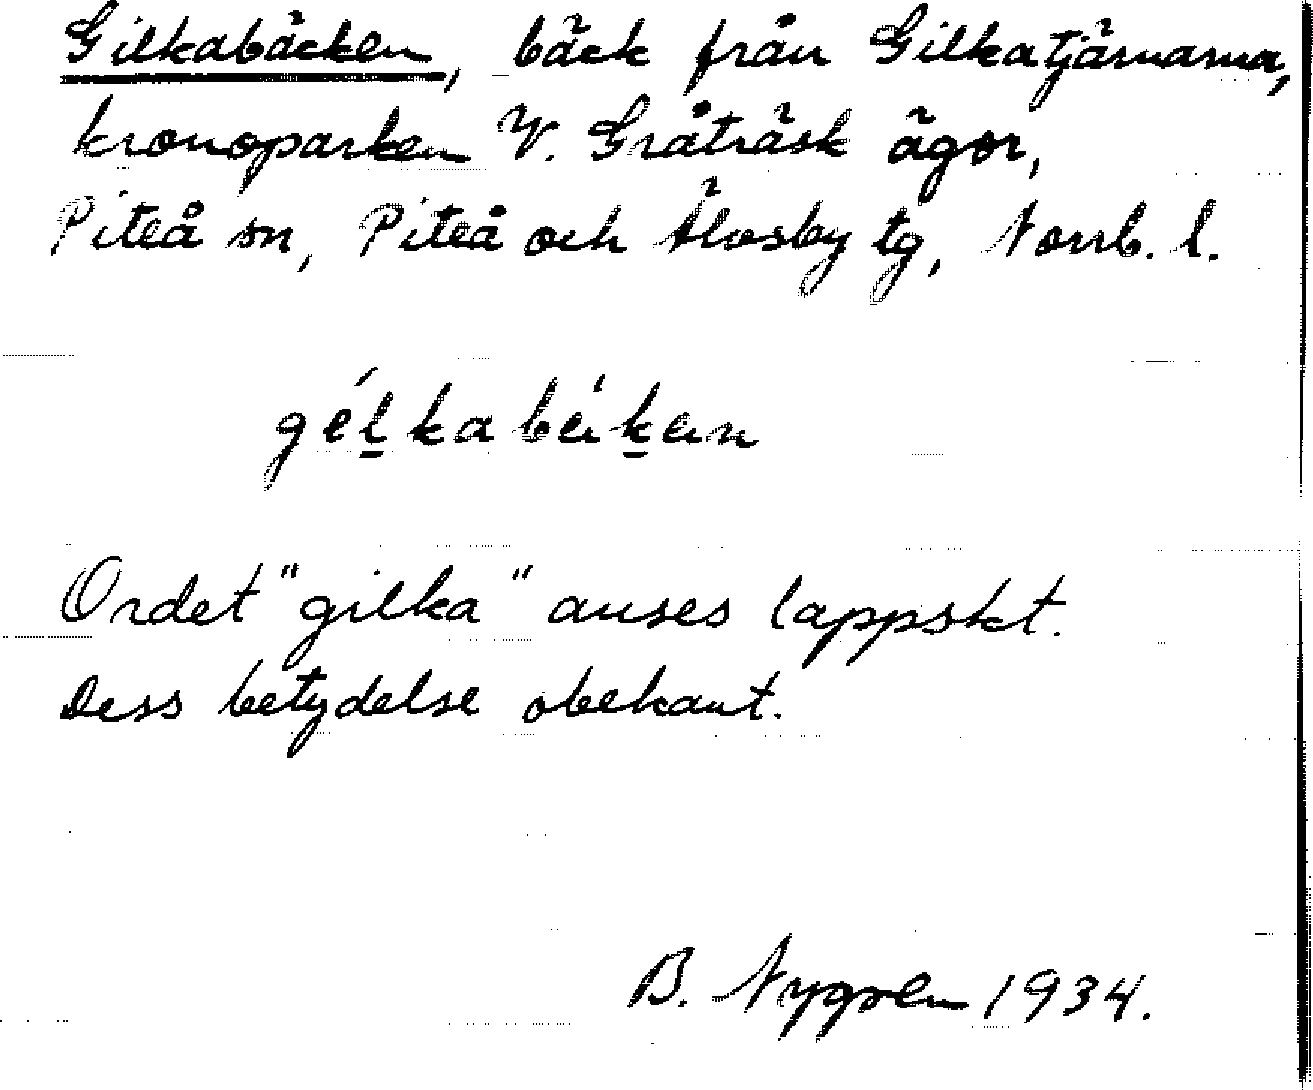 Gilkabäcken, bäck från Gilkatjärnarna,
kronoparken V. Gråträsk ägor,
Piteå sn, Piteå och Älvsby tg, Norrb. l.
gélkabéiken
Ordet "gilka" anses lappskt.
Dess betydelse obekant.
B. Nygren 1934.